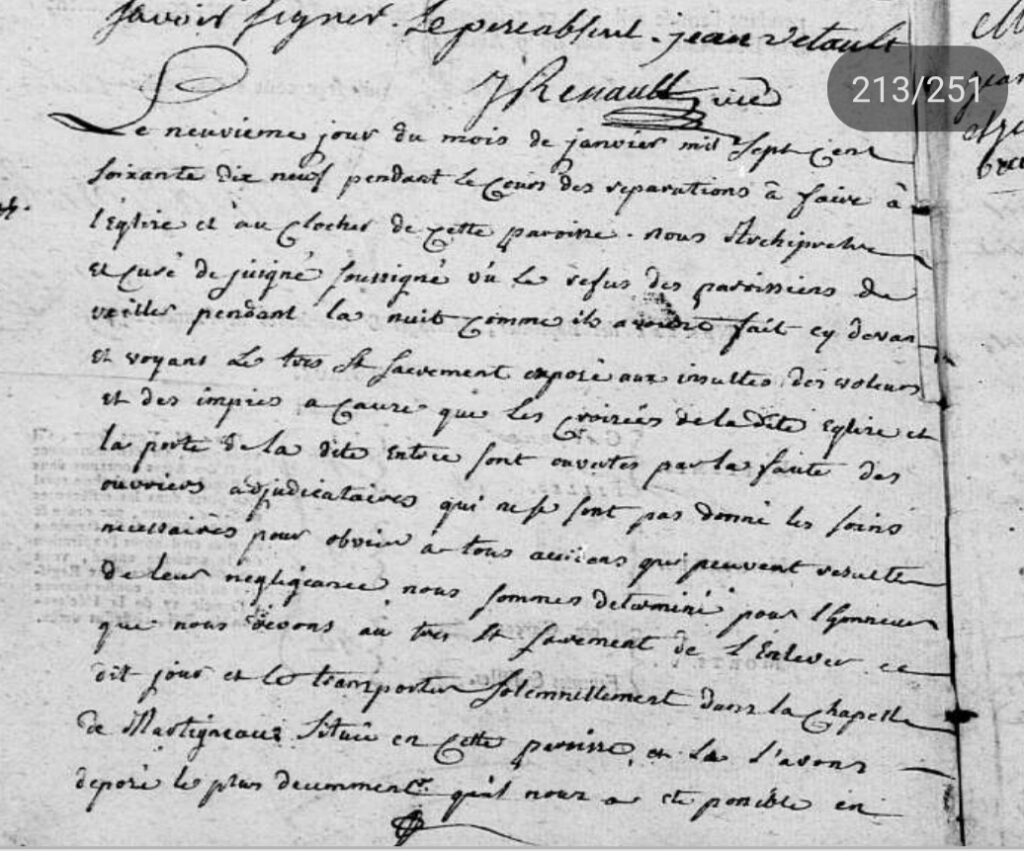 savoir signer. Le pere absent. jean vetault
JRenault vic
213/251
Le neuvieme jour du mois de janvier mil sept cent
soixante dix neuf pendant le cours des reparations à faire à
l'Eglise et au clocher de cette paroisse. nous Archipretre
et curé de juigné soussigné vû le refus des paroissiens de
veiller pendant la nuit comme ils avoient fait cy devan
et voyant le tres St sacrement exposé aux insultes des voleurs
et des impies a cause que les croisées de la dite Eglise et
la porte de la dite Entrée sont ouvertes par la faute des
ouvriers adjudicataires qui ne se sont pas donné les soins
necessaires pour obvier a tous accidans qui peuvent resulter
de leur negligeance nous sommes determiné pour l'honneur
que nous devons au tres St sacrement de l'Enlever ce
dit jour et le transporter solemnellement dans la chapelle
de Martigneaux située en cette paroisse, et la l'avons
deposé le plus decemment qu'il nous a eté possible en